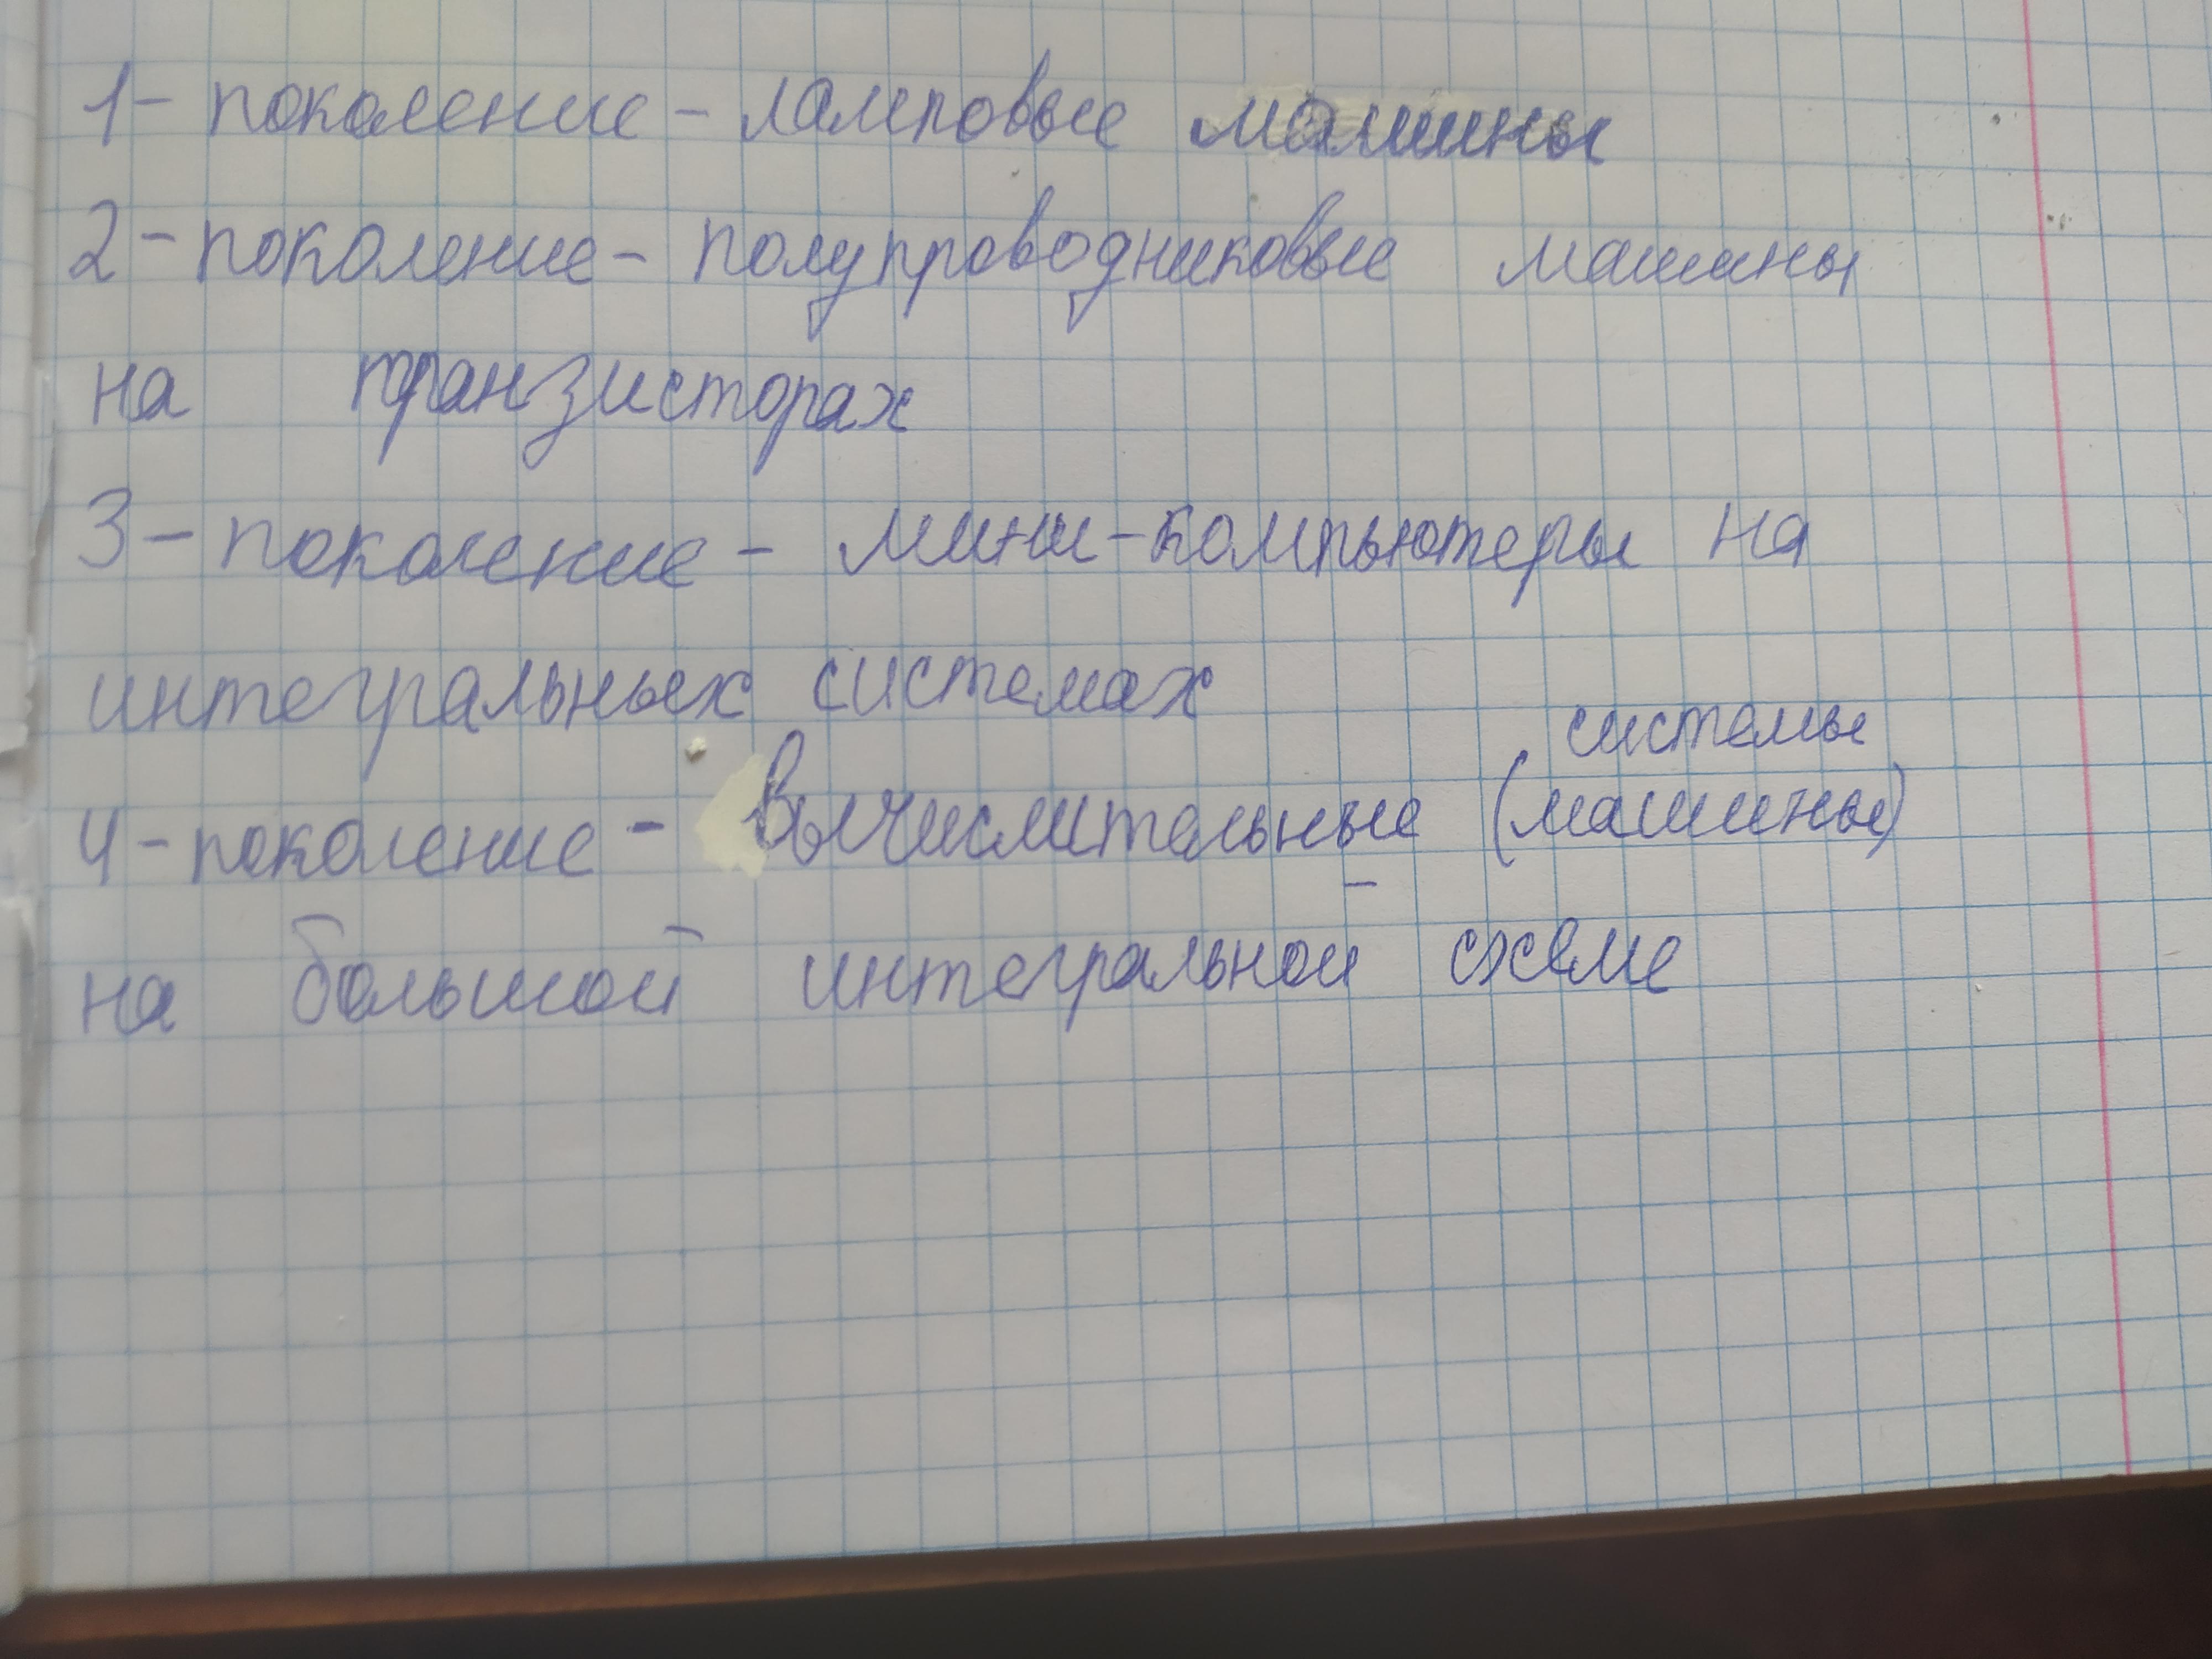 1- поколение - ламповые машины
2- поколение - полупроводниковые машины
на транзисторах
3- поколение - мини-компьютеры на
интегральных системах
системы
4- поколение - вычислительные (машины)
на большой интегральной схеме